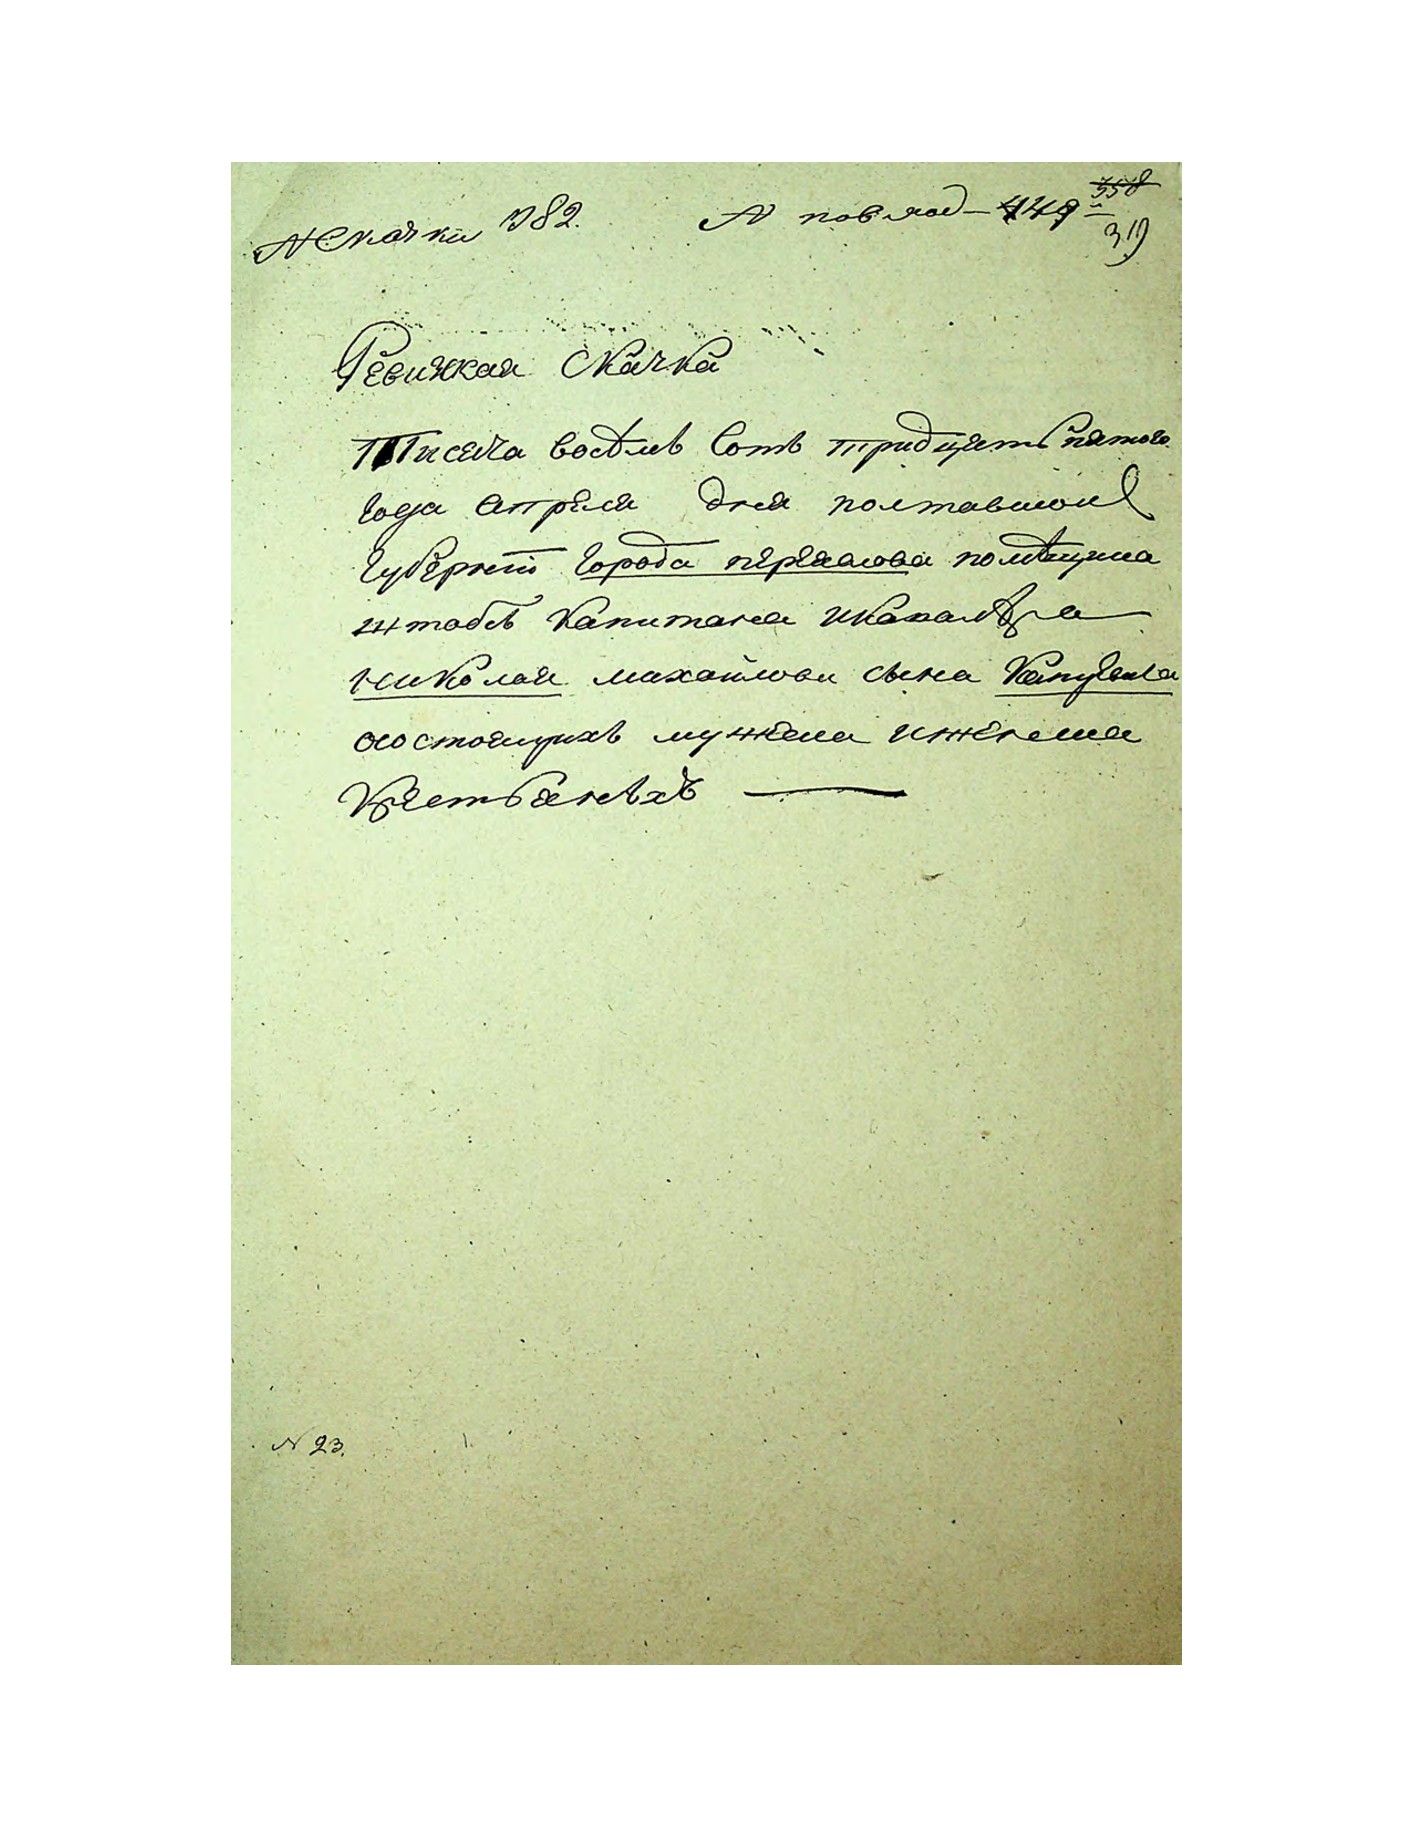 N Скаски 782. N по вѣдо 449 358
319
Ревизкая Скаска
Тисяча восѣмъ Сотъ тридцять пятого
Года апреля дня полтавской
Губерніи Города переяслова помѣщика
штабсъ Капитана икавалѣра
николая михайлови сына
осостоящихъ мужеска иженска
Крестьянѣхъ
N 23.